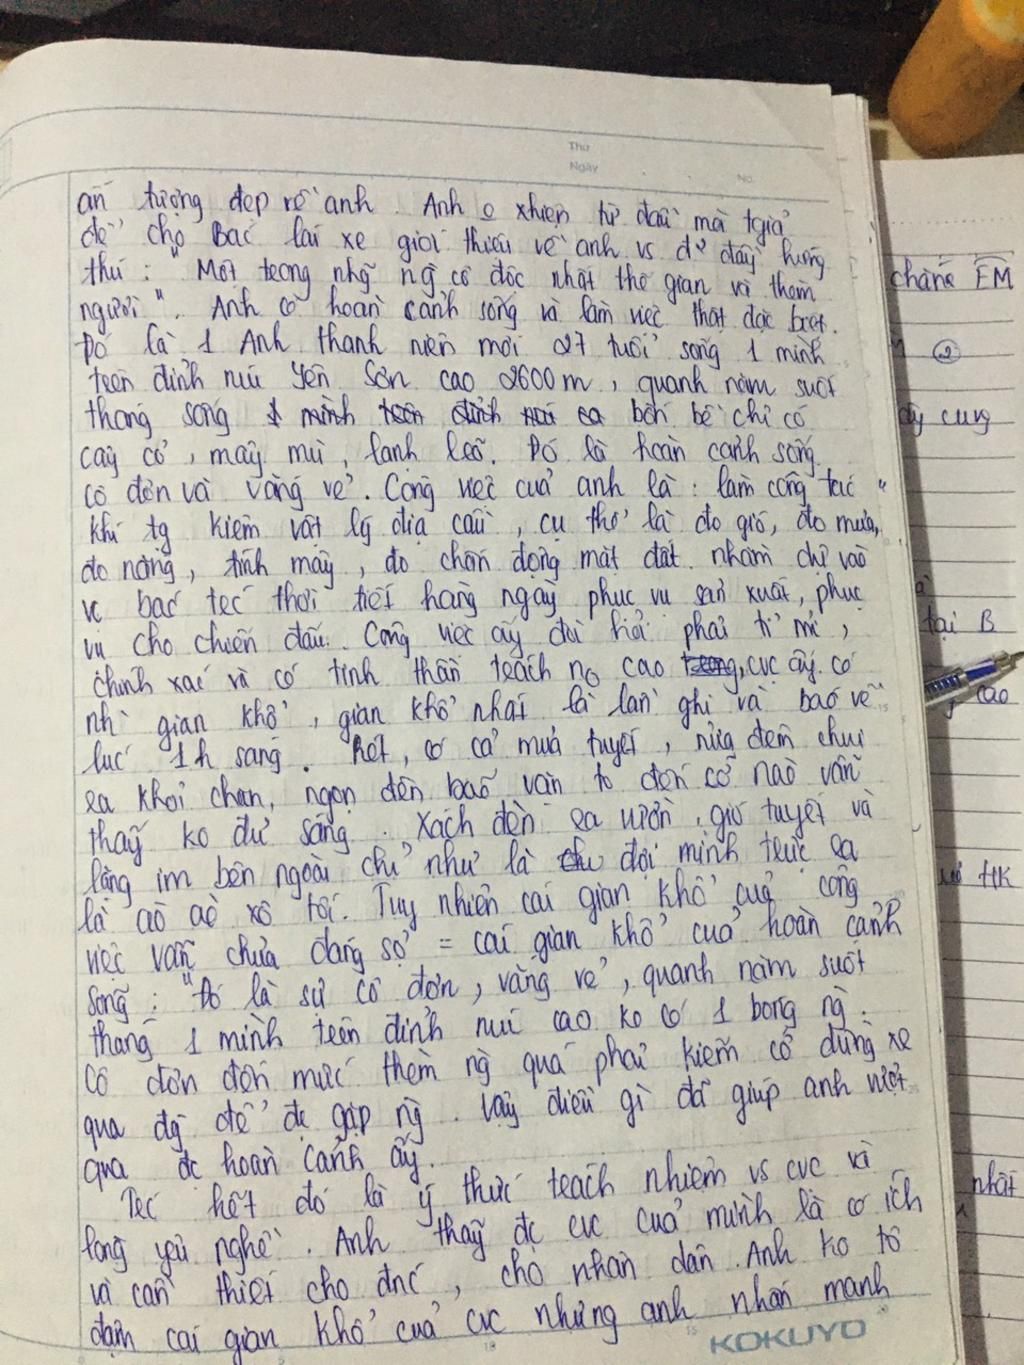 Thứ
Ngày
No.
ấn tượng đẹp về anh. Anh o xhiện từ đầu mà tgiả
để cho Bác lái xe giới thiệu về anh vs đ² đầy hứng
thú : "Một trong nhg̃ ng̀ cô độc nhất thế gian và thèm
người". Anh có hoàn cảnh sống và làm việc thật đặc biệt.
Đó là 1 Anh thanh niên mới 27 tuổi sống 1 mình
trên đỉnh núi Yên Sơn cao 2600m, quanh năm suốt
tháng sống 1 mình trên đỉnh núi bốn bề chỉ có
cây cỏ, mây mù, lạnh lẽo. Đó là hoàn cảnh sống
cô đơn và vắng vẻ. Công việc của anh là : làm công tác "
khí tg kiêm vật lý địa cầu, cụ thể là đo gió, đo mưa,
đo nắng, tính mây, đo chấn động mặt đất nhằm dự vào
vc báo trc thời tiết hàng ngày phục vụ sản xuất, phục
vụ cho chiến đấu. Công việc ấy đòi hỏi phải tỉ mỉ,
chính xác và có tinh thần trách no cao trong, cvc ấy có
nh̀ gian khổ, gian khổ nhất là lần ghi và báo về
lúc 1h sáng. Rét, có cả mưa tuyết, nửa đêm chui
ra khỏi chăn, ngọn đèn bão vặn to đến cỡ nào vẫn
thấy ko đủ sáng. Xách đèn ra vườn, gió tuyết và
lặng im bên ngoài chỉ như là chử đợi mình trực ra
là ào ào xô tới. Tuy nhiên cái gian khổ của công
việc vẫn chưa đáng sợ = cái gian khổ của hoàn cảnh
sống : "Đó là sự cô đơn, vắng vẻ, quanh năm suốt
tháng 1 mình trên đỉnh núi cao ko có 1 bóng ng̀.
Cô đơn đến mức thèm ng̀ quá phải kiếm cớ dừng xe
qua đg̀ để đc gặp ng̀. Vậy điều gì đã giúp anh vượt
qua đc hoàn cảnh ấy.
Trc hết đó là ý thức trách nhiệm vs cvc và
lòng yêu nghề. Anh thấy đc cvc của mình là có ích
và cần thiết cho đnc, cho nhân dân. Anh ko tô
đậm cái gian khổ của cvc nhưng anh nhấn mạnh
KOKUYO
chàng EM
2
cung
tại B
cao
HK
nhất